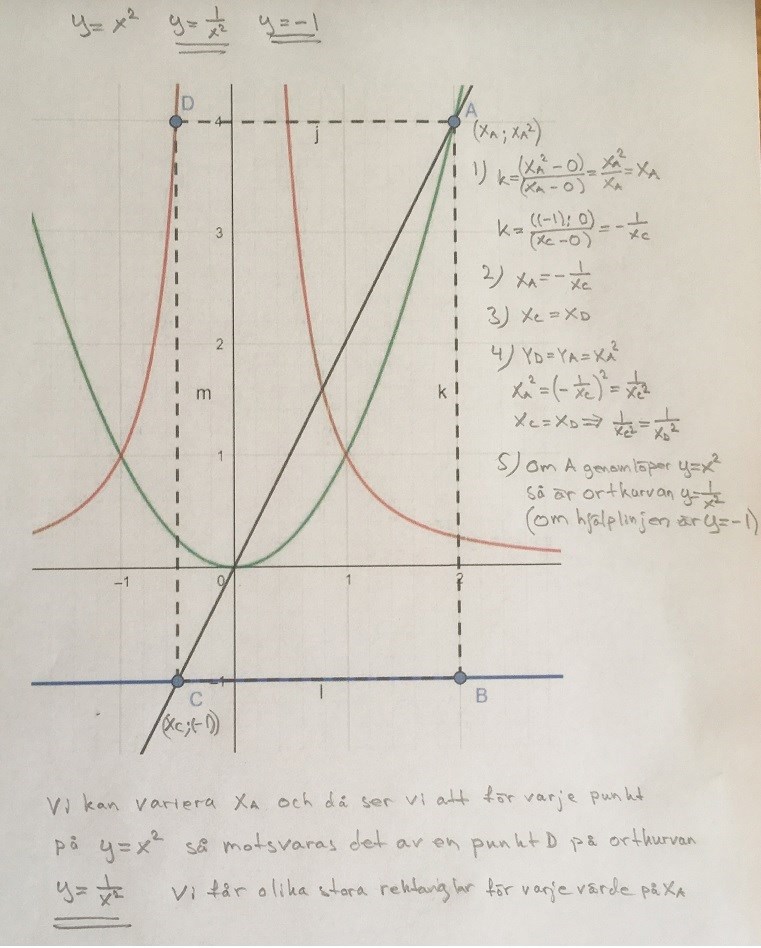 y = x² y = 1/x² y = -1
D
A
4
j
(x_A ; x_A²)
1) k = (x_A² - 0)/(x_A - 0) = x_A²/x_A = x_A
k = ((-1); 0)/(x_C - 0) = -1/x_C
3
2) x_A = -1/x_C
3) x_C = x_D
2
4) Y_D = Y_A = x_A²
m
k
x_A² = (-1/x_C)² = 1/x_C²
x_C = x_D ⇒ 1/x_C² = 1/x_D²
1
5) Om A genomlöper y = x²
så är ortkurvan y = 1/x²
(om hjälplinjen är y = -1)
-1 0 1 2
-1
C
l
B
(x_C ; (-1))
Vi kan variera x_A och då ser vi att för varje punkt
på y = x² så motsvaras det av en punkt D på ortkurvan
y = 1/x² Vi får olika stora rektanglar för varje värde på x_A